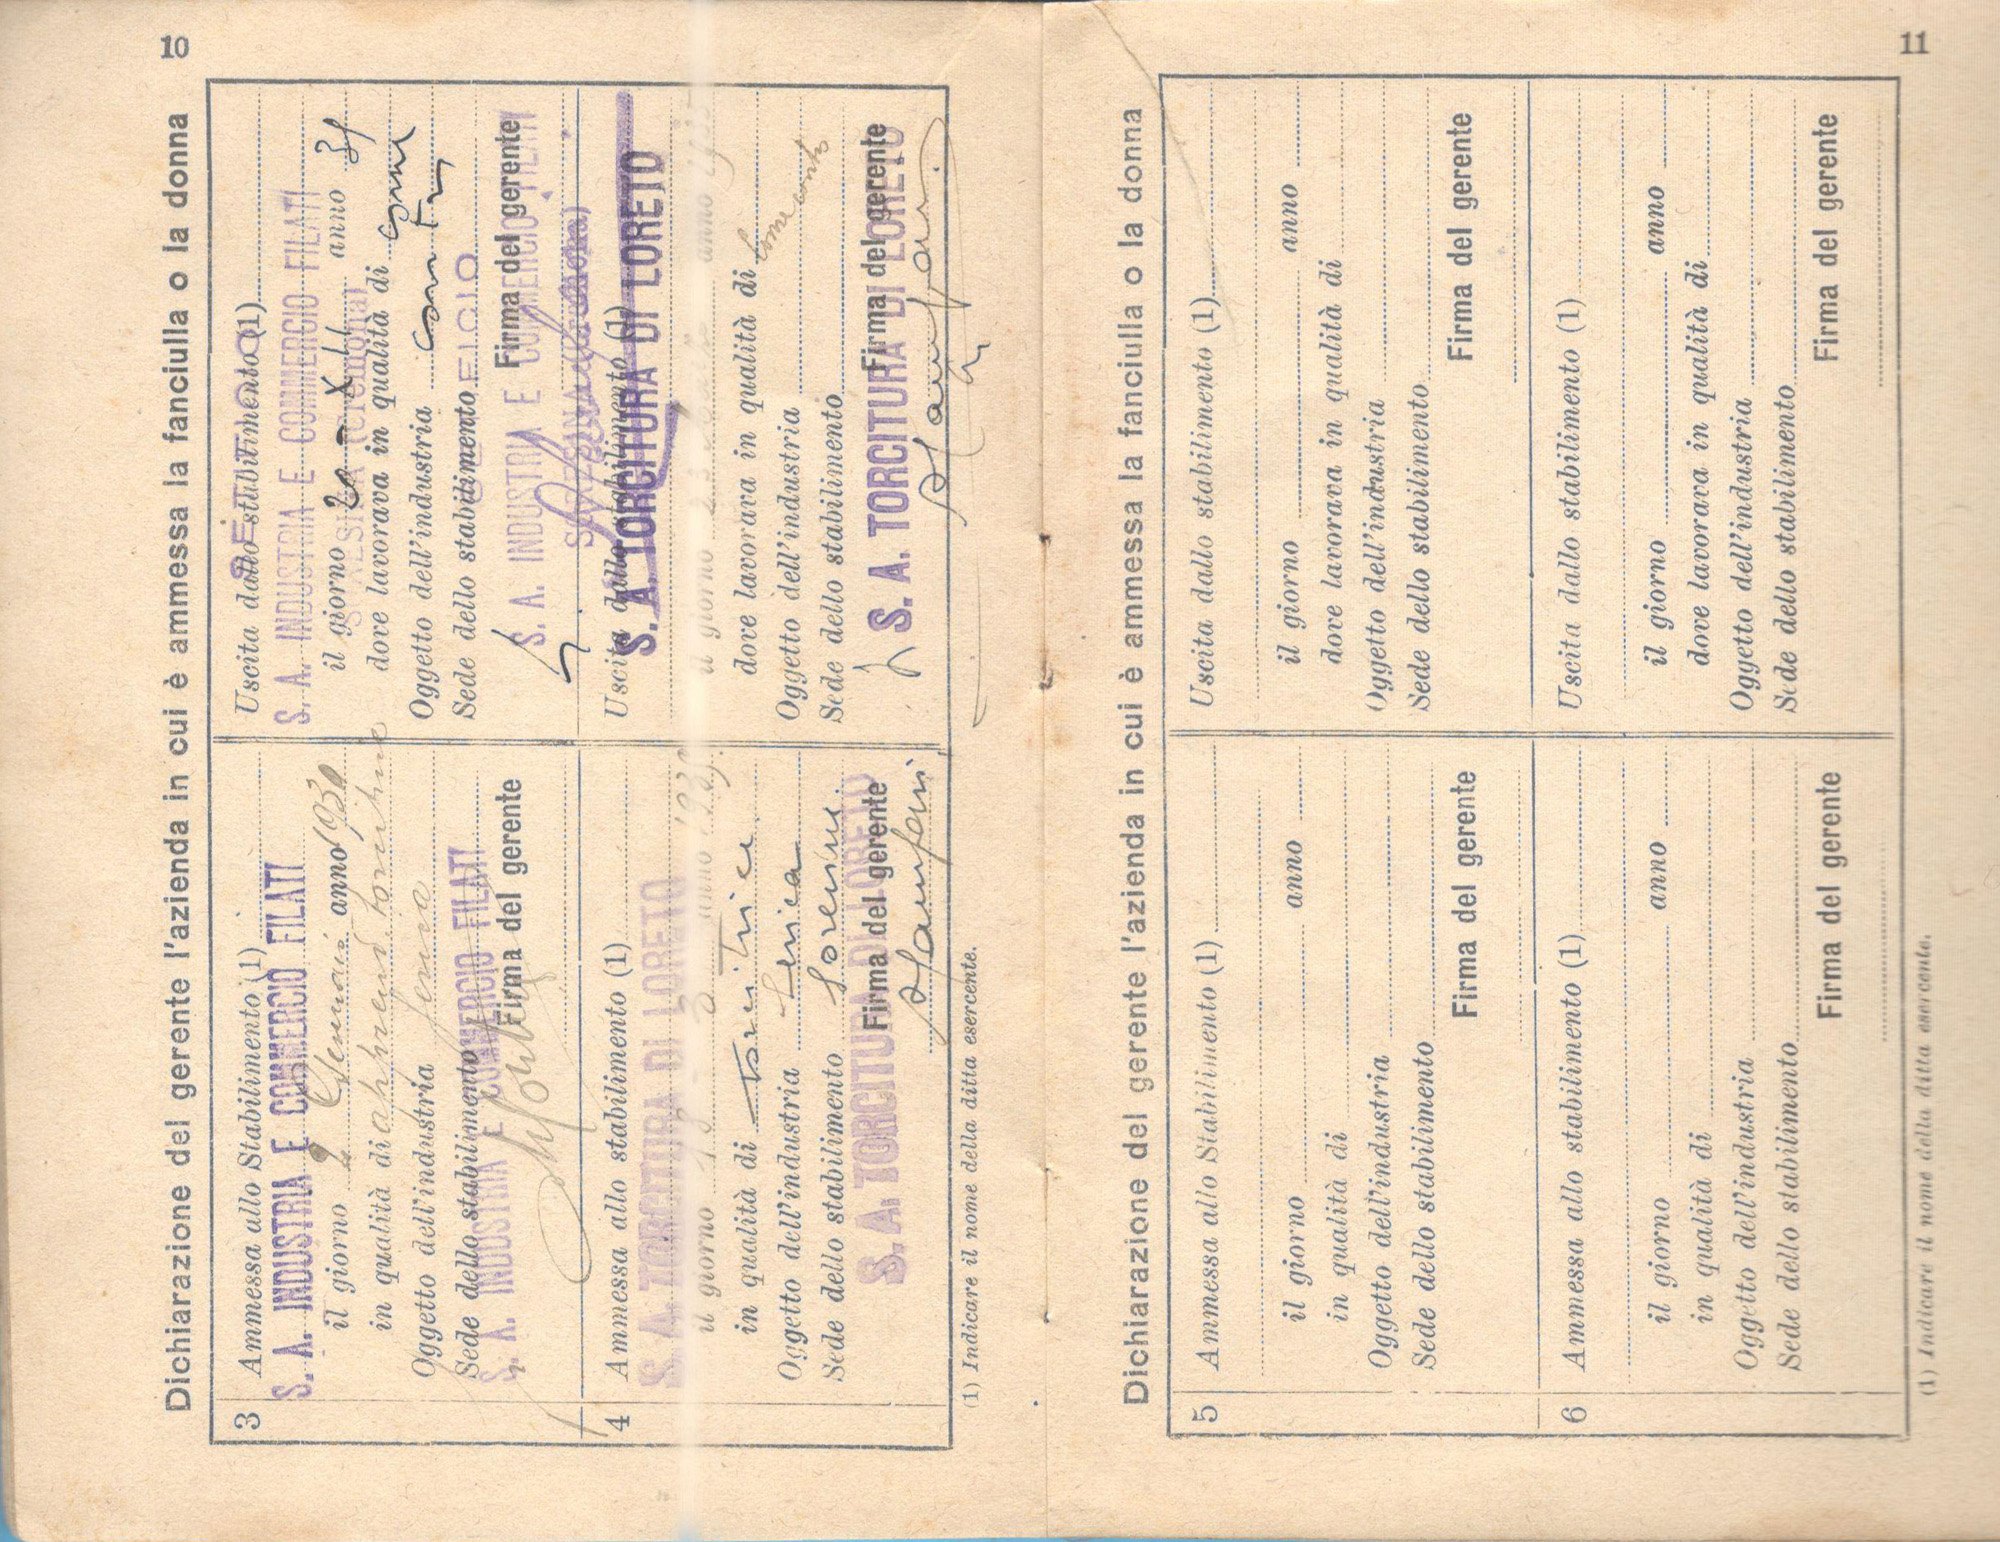 10
Dichiarazione del gerente l'azienda in cui è ammessa la fanciulla o la donna
3
Ammessa allo Stabilimento (1)
S. A. INDUSTRIA E COMMERCIO FILATI
il giorno 9 Gennaio anno 1930
in qualità di
Oggetto dell'industria
Sede dello stabilimento
S. A. INDUSTRIA E COMMERCIO FILATI
Firma del gerente
Uscita dallo stabilimento (1)
S. A. INDUSTRIA E COMMERCIO FILATI
il giorno anno
dove lavorava in qualità di come
Oggetto dell'industria contro
Sede dello stabilimento
Firma del gerente
S. A. INDUSTRIA E COMMERCIO FILATI
4
Ammessa allo stabilimento (1)
S. A. TORCITURA DI LORETO
il giorno anno
in qualità di
Oggetto dell'industria Serica
Sede dello stabilimento
Firma del gerente
S. A. TORCITURA DI LORETO
Uscita dallo stabilimento (1)
S. A. TORCITURA DI LORETO
il giorno anno
dove lavorava in qualità di come contro
Oggetto dell'industria
Sede dello stabilimento
Firma del gerente
S. A. TORCITURA DI LORETO
(1) Indicare il nome della ditta esercente.
11
Dichiarazione del gerente l'azienda in cui è ammessa la fanciulla o la donna
5
Ammessa allo Stabilimento (1)
il giorno anno
in qualità di
Oggetto dell'industria
Sede dello stabilimento
Firma del gerente
Uscita dallo stabilimento (1)
il giorno anno
dove lavorava in qualità di
Oggetto dell'industria
Sede dello stabilimento
Firma del gerente
6
Ammessa allo stabilimento (1)
il giorno anno
in qualità di
Oggetto dell'industria
Sede dello stabilimento
Firma del gerente
Uscita dallo stabilimento (1)
il giorno anno
dove lavorava in qualità di
Oggetto dell'industria
Sede dello stabilimento
Firma del gerente
(1) Indicare il nome della ditta esercente.